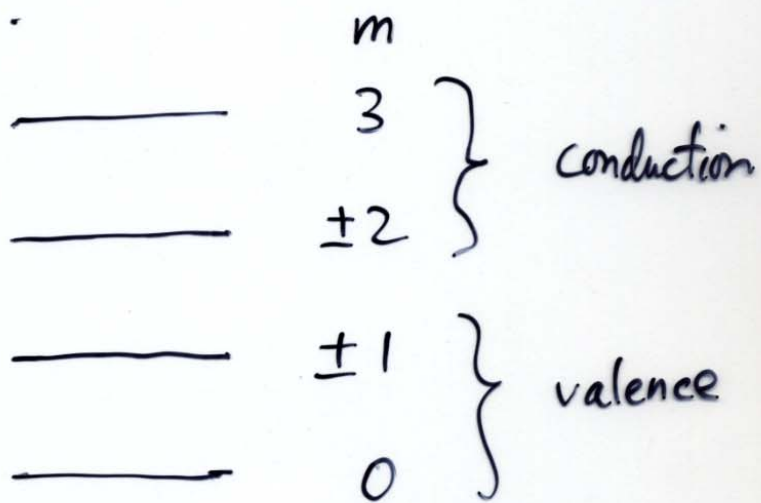 m
3
conduction
±2
±1
valence
0